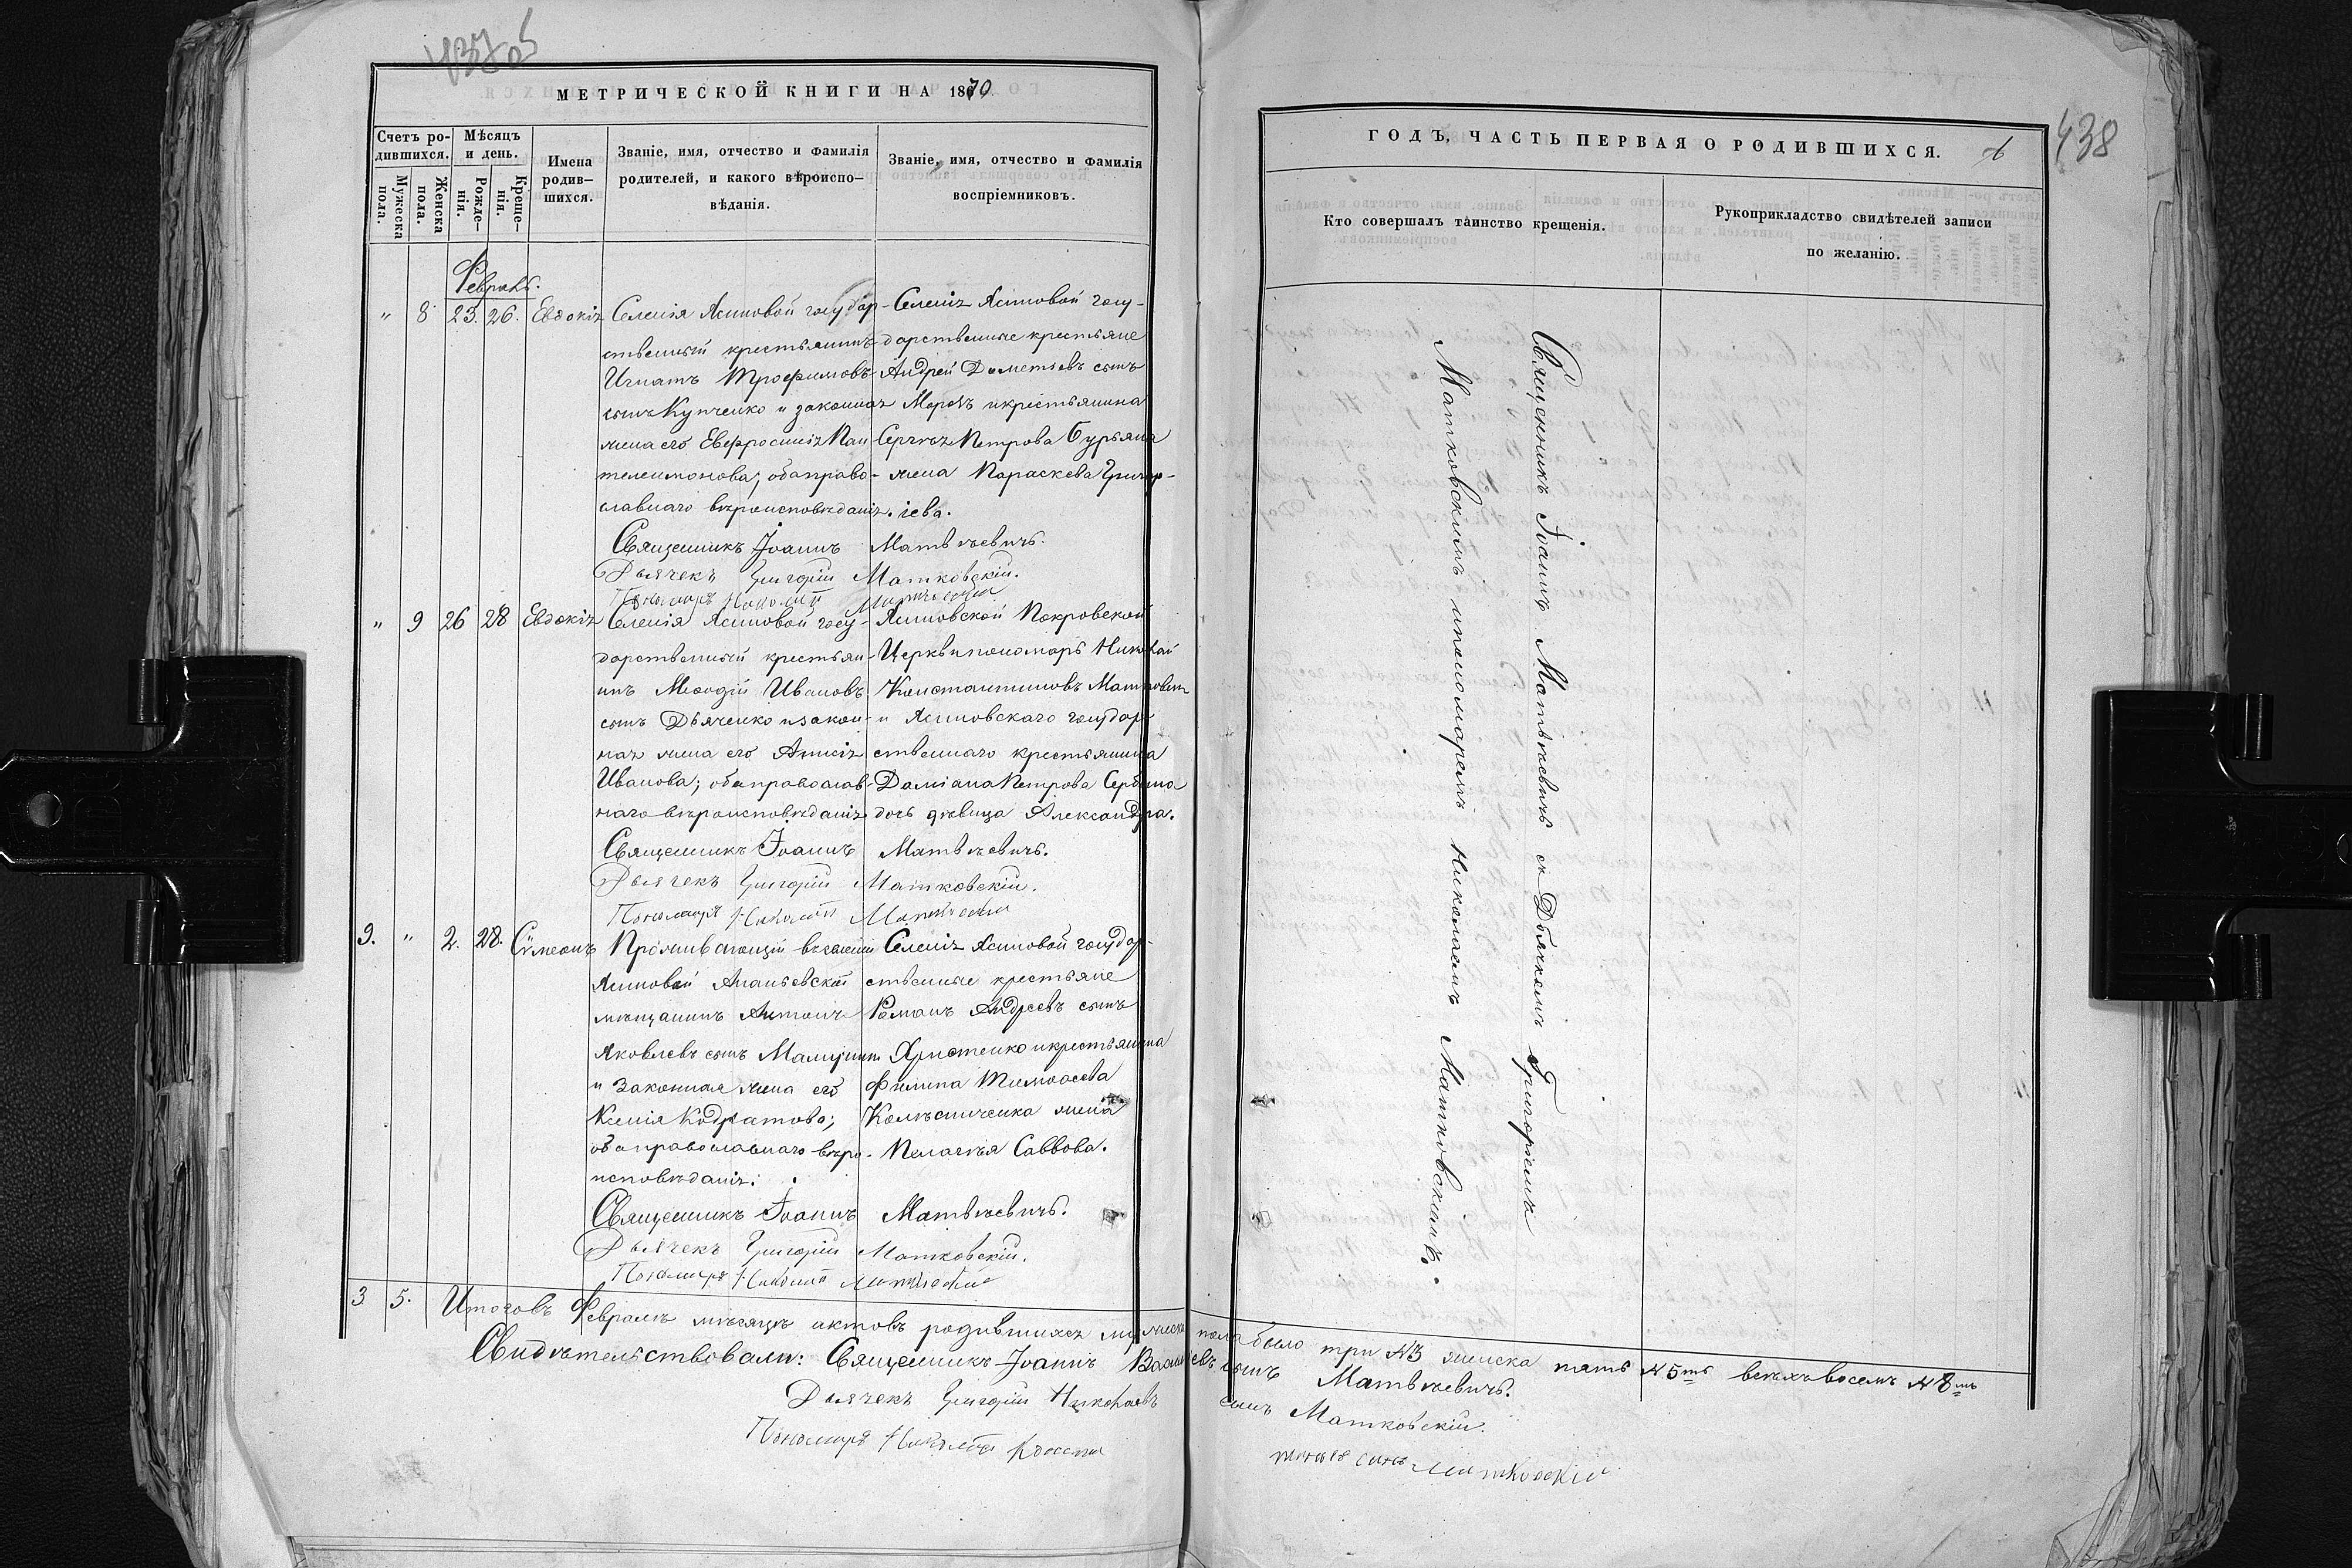 437об
МЕТРИЧЕСКОЙ КНИГИ НА 1870
Счетъ родившихся.
Мѣсяцъ и день.
Имена родив—шихся.
Званіе, имя, отчество и фамилія родителей, и какого вѣроиспо—вѣданія.
Званіе, имя, отчество и фамилія воспріемниковъ.
Мужеска пола.
Женска пола.
Рожде—нія.
Креще—нія.
Февраль.
" 8 23. 26. Евдокія
Селенія Ясиновой государ-
ственный крестьянинъ
Игнатъ Трофимовъ
сынъ Купченко и законная
жена его Евфросинія Пан
телеимонова, оба право-
славнаго вѣроисповѣданія.
Селенія Ясиновой госу-
дарственные крестьяне
Андрей Дометіевъ сынъ
Морозъ и крестьянина
Сергѣя Петрова Бурьяна
жена Параскева Григор-
іева.
Священникъ Іоаннъ Матвѣевичъ.
Дьячекъ Григорій Матковскій.
Пономарь Николай Матковскій
" 9 26 28 Евдокія
Селенія Ясиновой госу-
дарственный крестьян-
инъ Меѳодій Ивановъ
сынъ Дьяченко и закон-
ная жена его Аннсія
Иванова; оба православ-
наго вѣроисповѣданія
Ясиновской Покровской
Церкви пономарь Николай
Константиновъ Матковскій
и Ясиновскаго государ-
ственнаго крестьянина
Даміана Петрова Сербина
дочь дѣвица Александра.
Священникъ Іоаннъ Матвѣевичъ.
Дьячекъ Григорій Матковскій.
Пономарь Николай Матковскій
9. " 2. 28. Сѵмеонъ
Проживающій въ селеніи
Ясиновой Ананьевскій
мѣщанинъ Антонъ
Яковлевъ сынъ
и законная жена его
Ксенія Кодратова;
оба православнаго вѣро-
исповѣданія.
Селенія Ясиновой государ-
ственные крестьяне
Романъ Андреевъ сынъ
Христенко и крестьянина
Филипа Тимоѳеева
Колѣсниченка жена
Пелагѣя Саввова.
Священникъ Іоаннъ Матвѣевичъ.
Дьячекъ Григорій Матковскій.
Пономарь Николай Матковскій
3 5. Итого въ Февралѣ мѣсяцѣ актовъ родившихся мужеска пола было три №3 женска пять №5ть всѣхъ восемь №8мь
Свидѣтельствовали: Священникъ Іоаннъ Васильевъ сынъ Матвѣевичъ.
Дьячекъ Григорій Николаевъ сынъ Матковскій.
Пономарь Николай Константиновъ сынъ Матковскій
438
ГОДЪ, ЧАСТЬ ПЕРВАЯ О РОДИВШИХСЯ.
Кто совершалъ таинство крещенія.
Рукоприкладство свидѣтелей записи по желанію.
Священникъ Іоаннъ Матвѣевичъ съ Дьячкомъ Григоріемъ
Матковскимъ и пономаремъ Николаемъ Матковскимъ.